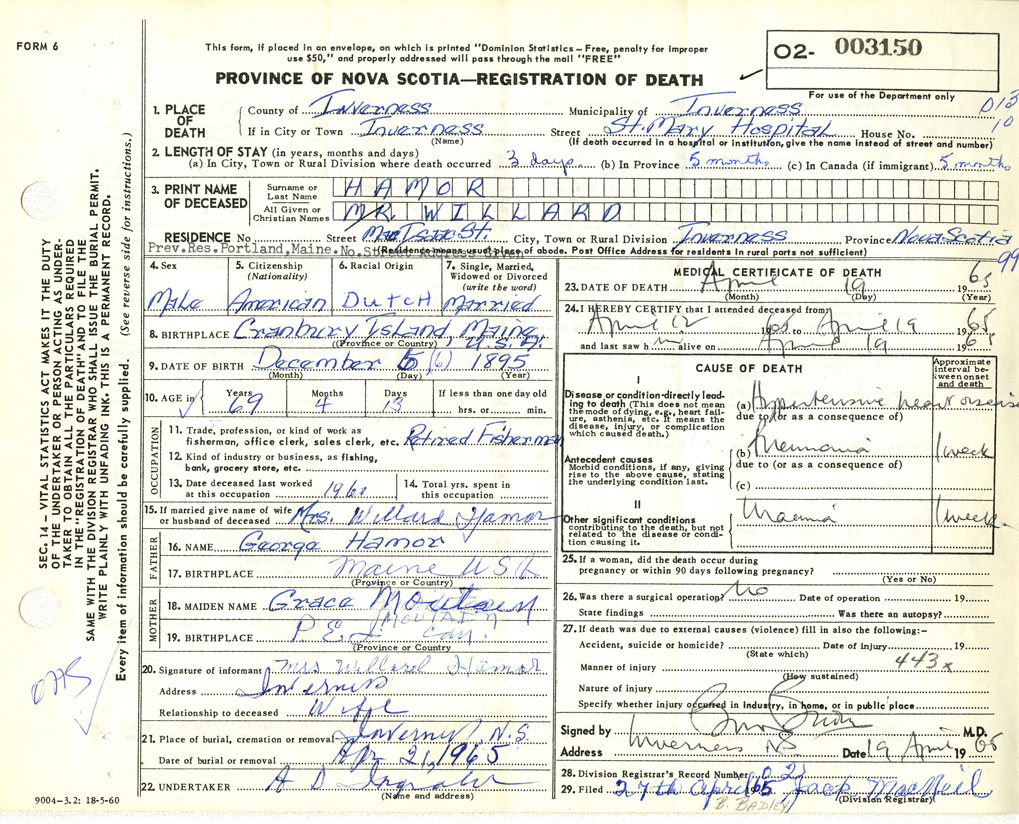 FORM 6
This form, if placed in an envelope, on which is printed "Dominion Statistics – Free, penalty for improper
use $50," and properly addressed will pass through the mail "FREE"
PROVINCE OF NOVA SCOTIA—REGISTRATION OF DEATH
O2- 003150
For use of the Department only
SEC. 14 – VITAL STATISTICS ACT MAKES IT THE DUTY
OF THE UNDERTAKER OR PERSON ACTING AS UNDER-
TAKER TO OBTAIN ALL THE PARTICULARS REQUIRED
IN THE "REGISTRATION OF DEATH" AND TO FILE THE
SAME WITH THE DIVISION REGISTRAR WHO SHALL ISSUE THE BURIAL PERMIT.
WRITE PLAINLY WITH UNFADING INK. THIS IS A PERMANENT RECORD.
Every item of information should be carefully supplied. (See reverse side for instructions.)
1. PLACE OF DEATH
County of Inverness Municipality of Inverness
If in City or Town Inverness Street St. Mary Hospital House No.
(Name) (If death occurred in a hospital or institution, give the name instead of street and number)
D13
10
2. LENGTH OF STAY (in years, months and days)
(a) In City, Town or Rural Division where death occurred 3 days (b) In Province 5 months (c) In Canada (if immigrant) 5 months
3. PRINT NAME OF DECEASED
Surname or Last Name HAMOR
All Given or Christian Names MR WILLARD
RESIDENCE No Street City, Town or Rural Division Inverness Province Nova Scotia
Prev.Res.Portland,Maine.No.Street Address Given
(Residence means usual place of abode. Post Office Address for residents in rural parts not sufficient)
99
4. Sex Male
5. Citizenship (Nationality) American
6. Racial Origin Dutch
7. Single, Married, Widowed or Divorced (write the word) Married
8. BIRTHPLACE Cranbury Island, Maine U.S.A.
(Province or Country)
9. DATE OF BIRTH December 5 (6) 1895
(Month) (Day) (Year)
10. AGE in Years 69 Months 4 Days 13 If less than one day old hrs. or min.
OCCUPATION
11. Trade, profession, or kind of work as fisherman, office clerk, sales clerk, etc. Retired Fisherman
12. Kind of industry or business, as fishing, bank, grocery store, etc.
13. Date deceased last worked at this occupation 1961
14. Total yrs. spent in this occupation
15. If married give name of wife or husband of deceased Mrs. Willard Hamor
FATHER
16. NAME George Hamor
17. BIRTHPLACE Maine USA
(Province or Country)
MOTHER
18. MAIDEN NAME Grace
19. BIRTHPLACE P.E.I. Can.
(Province or Country)
20. Signature of informant Mrs Willard Hamor
Address Inverness
Relationship to deceased Wife
21. Place of burial, cremation or removal Inverness N.S.
Date of burial or removal Apr 21, 1965
22. UNDERTAKER A D
(Name and address)
9004–3.2: 18-5-60
MEDICAL CERTIFICATE OF DEATH
23. DATE OF DEATH April 19 1965
(Month) (Day) (Year)
24. I HEREBY CERTIFY that I attended deceased from:
April 12 1965 to April 19 1965
and last saw him alive on April 19 1965
CAUSE OF DEATH
Approximate interval between onset and death
I
Disease or condition directly leading to death (This does not mean the mode of dying, e.g., heart failure, asthenia, etc. It means the disease, injury, or complication which caused death.)
(a) Hypertensive heart disease
due to (or as a consequence of)
Antecedent causes
Morbid conditions, if any, giving rise to the above cause, stating the underlying condition last.
(b) Pneumonia 1 week
due to (or as a consequence of)
(c)
II
Other significant conditions contributing to the death, but not related to the disease or condition causing it.
Uraemia 1 week
25. If a woman, did the death occur during pregnancy or within 90 days following pregnancy?
(Yes or No)
26. Was there a surgical operation? No Date of operation 19
State findings Was there an autopsy?
27. If death was due to external causes (violence) fill in also the following:–
Accident, suicide or homicide? Date of injury 19
(State which)
443x
Manner of injury
(How sustained)
Nature of injury
Specify whether injury occurred in Industry, in home, or in public place
Signed by M.D.
Address Inverness NS Date 19 April 1965
28. Division Registrar's Record Number
29. Filed 27th April 1965 Jack MacNeil
(Division Registrar)
B. BADLEY